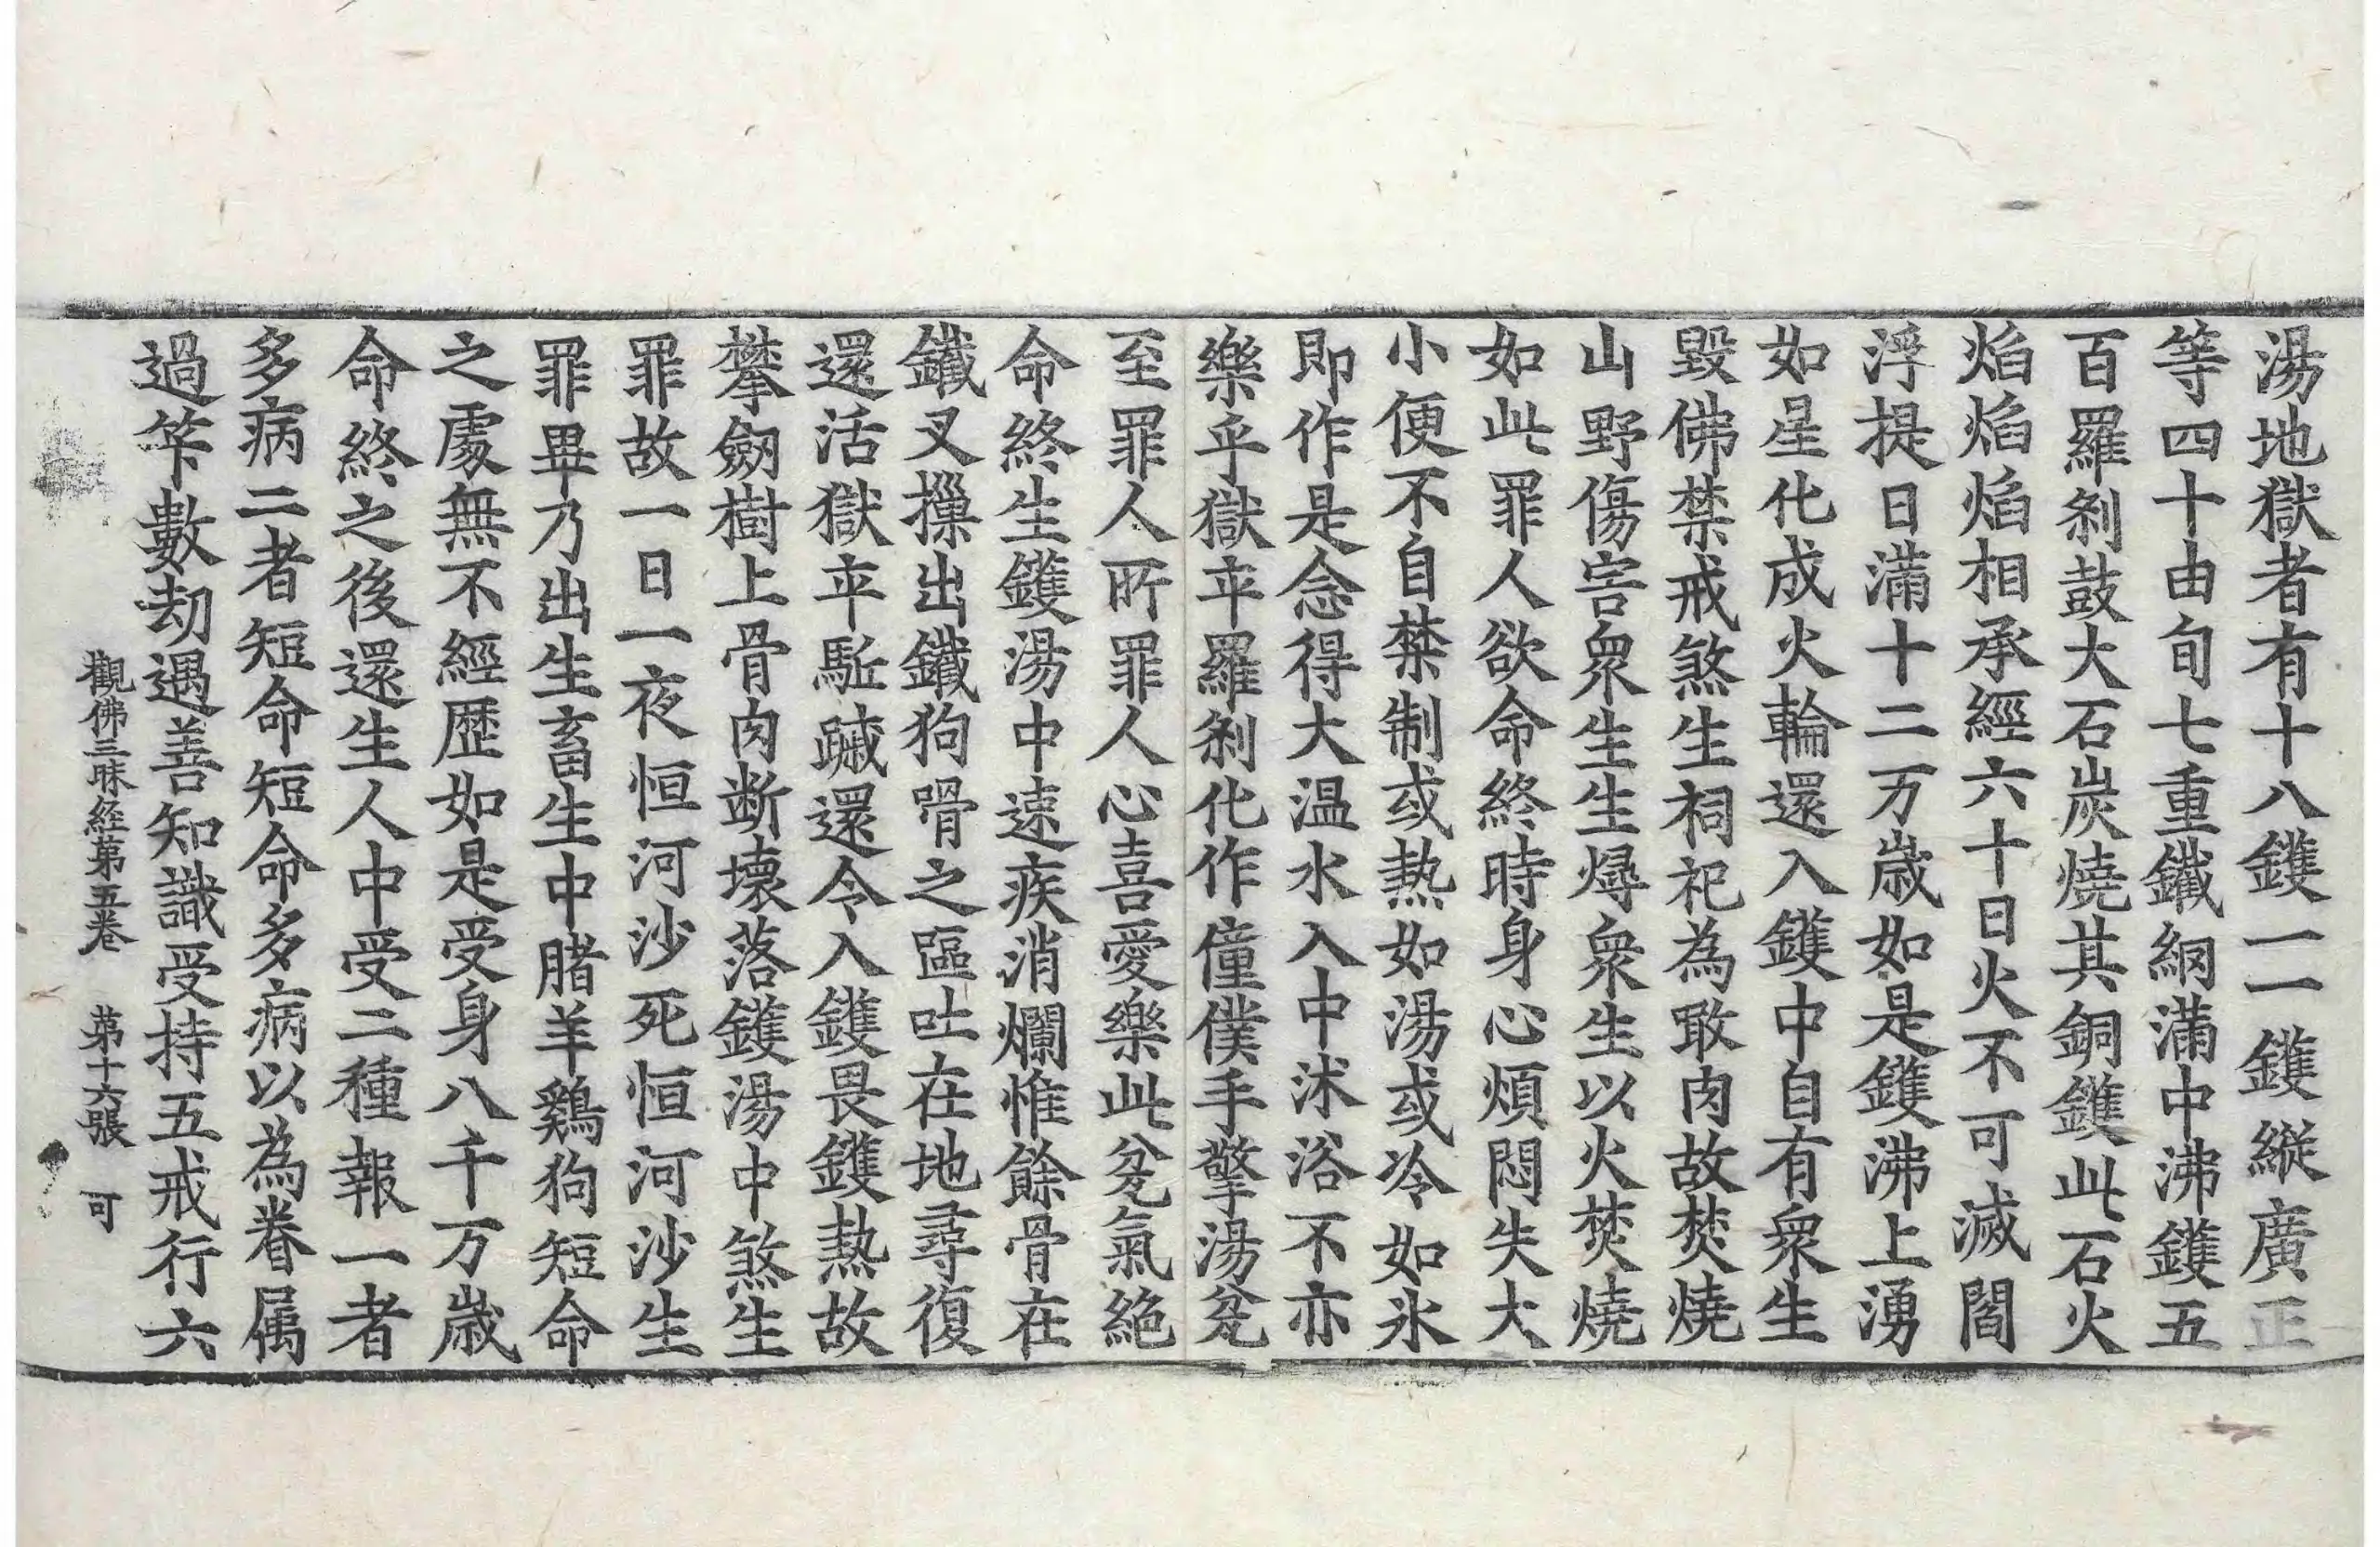 湯地獄者有十八鑊一一鑊縱廣正
等四十由旬七重鐵網滿中沸鑊五
百羅剎鼓大石炭燒其銅鑊此石火
焰焰焰相承經六十日火不可滅閻
浮提日滿十二万歲如是鑊沸上湧
如星化成火輪還入鑊中自有眾生
毀佛禁戒煞生祠祀為噉肉故焚燒
山野傷害眾生生燖眾生以火焚燒
如此罪人欲命終時身心煩悶失大
小便不自禁制或熱如湯或冷如氷
即作是念得大温水入中沐浴不亦
樂乎獄卒羅剎化作僮僕手擎湯瓮
至罪人所罪人心喜愛樂此瓮氣絕
命終生鑊湯中速疾消爛惟餘骨在
鐵叉摷出鐵狗嚼之嘔吐在地尋復
還活獄卒駈蹴還令入鑊畏鑊熱故
攀劒樹上骨肉断壞落鑊湯中煞生
罪故一日一夜恒河沙死恒河沙生
罪畢乃出生畜生中猪羊鷄狗短命
之處無不經歷如是受身八千万歲
命終之後還生人中受二種報一者
多病二者短命短命多病以為眷属
過筭數劫遇善知識受持五戒行六
觀佛三昧経苐五卷 苐十六張 可